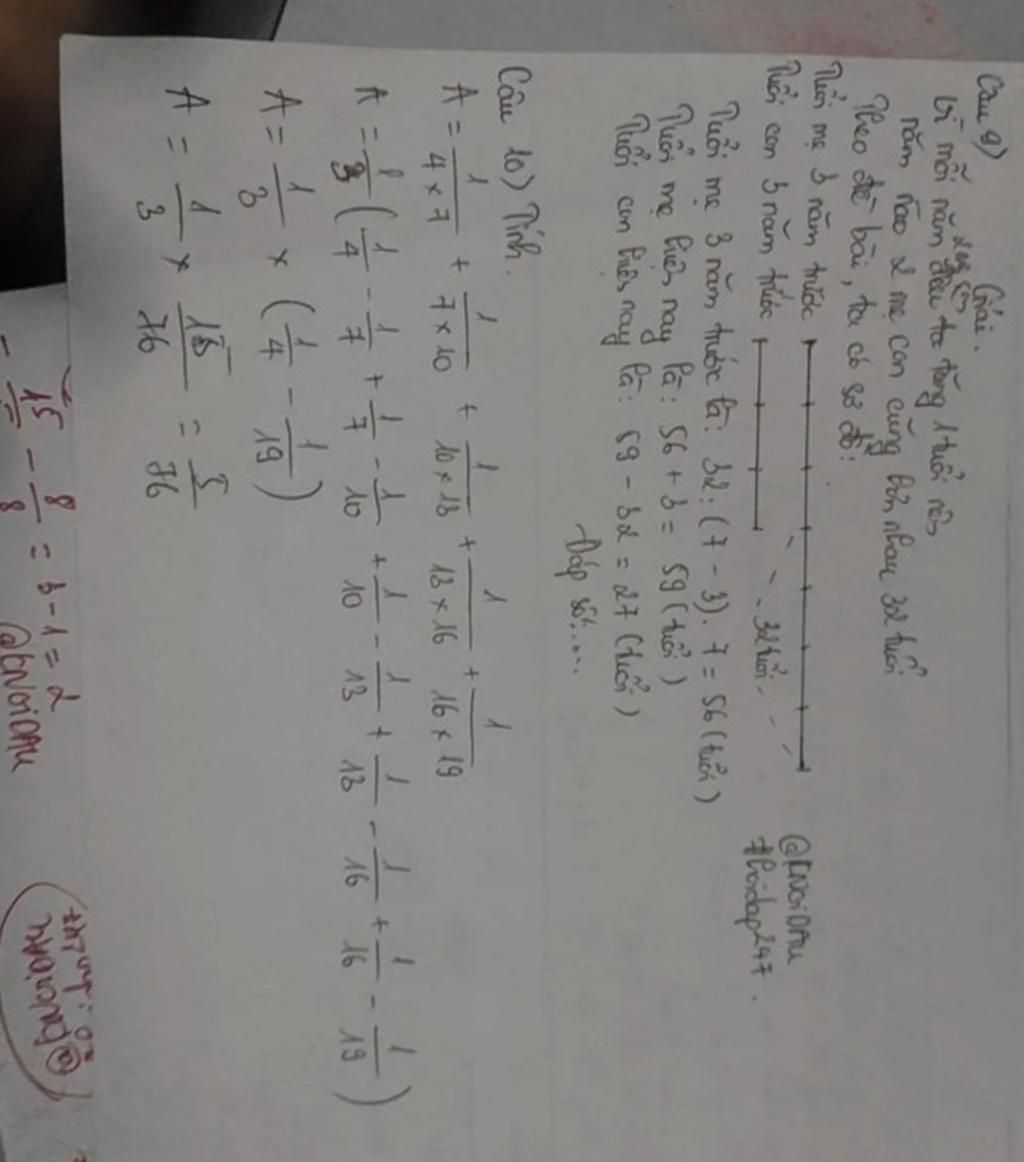 Câu 9)
Giải.
Vì mỗi năm đều ta tăng 1 tuổi nên
năm nào 2 mẹ con cũng hơn nhau 32 tuổi
Theo đề bài, ta có sơ đồ:
Tuổi mẹ 3 năm trước
Tuổi con 3 năm trước 32 tuổi
@ENOiDAU
#hoidap247.
Tuổi mẹ 3 năm trước là: 32: (7 - 3). 7 = 56 (tuổi)
Tuổi mẹ hiện nay là: 56 + 3 = 59 (tuổi)
Tuổi con hiện nay là: 59 - 32 = 27 (tuổi)
Đáp số:....
Câu 10) Tính.
A = 1/4×7 + 1/7×10 + 1/10×13 + 1/13×16 + 1/16×19
A = 1/3 (1/4 - 1/7 + 1/7 - 1/10 + 1/10 - 1/13 + 1/13 - 1/16 + 1/16 - 1/19)
A = 1/3 × (1/4 - 1/19)
A = 1/3 × 15/76 = 5/76
15 - 8/8 = 3 - 1 = 2
@ENOiDAU